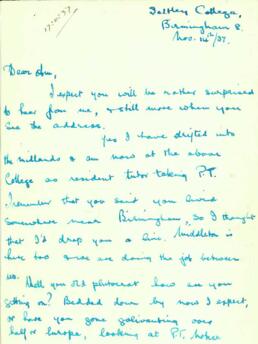 17 Nov 37
Saltley College,
Birmingham 8.
Nov. 14th/37.
Dear
I expect you will be rather surprised
to hear from me, & still more when you
see the address.
Yes I have drifted into
the midlands & am now at the above
College as resident tutor taking P.T.
I remember that you said you lived
somewhere near Birmingham, so I thought
that I'd drop you a line. Middleton is
here too & we are doing the job between
us.
Well you old plutocrat how are you
getting on? Bedded down by now I expect,
or have you gone galivanting over
half of Europe, looking at P.T. before